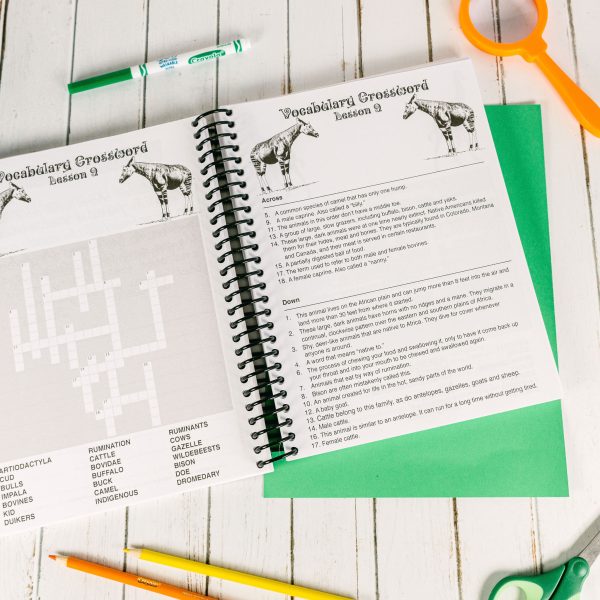 Crayola
Vocabulary Crossword
Lesson 9
ARTIODACTYLA
CUD
BULLS
IMPALA
BOVINES
KID
DUIKERS
RUMINATION
CATTLE
BOVIDAE
BUFFALO
BUCK
CAMEL
INDIGENOUS
RUMINANTS
COWS
GAZELLE
WILDEBEESTS
BISON
DOE
DROMEDARY
Vocabulary Crossword
Lesson 9
Across
5. A common species of camel that has only one hump.
9. A male caprine. Also called a "billy."
11. The animals in this order don't have a middle toe.
13. A group of large, slow grazers, including buffalo, bison, cattle and yaks.
14. These large, dark animals were at one time nearly extinct. Native Americans killed
them for their hides, meat and bones. They are typically found in Colorado, Montana
and Canada, and their meat is served in certain restaurants.
15. A partially digested ball of food.
17. The term used to refer to both male and female bovines.
18. A female caprine. Also called a "nanny."
Down
1. This animal lives on the African plain and can jump more than 8 feet into the air and
land more than 30 feet from where it started.
2. These large, dark animals have horns with no ridges and a mane. They migrate in a
continual, clockwise pattern over the eastern and southern plains of Africa.
3. Shy, deer-like animals that are native to Africa. They dive for cover whenever
anyone is around.
4. A word that means "native to."
6. The process of chewing your food and swallowing it, only to have it come back up
your throat and into your mouth to be chewed and swallowed again.
7. Animals that eat by way of rumination.
8. Bison are often mistakenly called this.
10. An animal created for life in the hot, sandy parts of the world.
12. A baby goat.
13. Cattle belong to this family, as do antelopes, gazelles, goats and sheep.
14. Male cattle.
16. This animal is similar to an antelope. It can run for a long time without getting tired.
17. Female cattle.